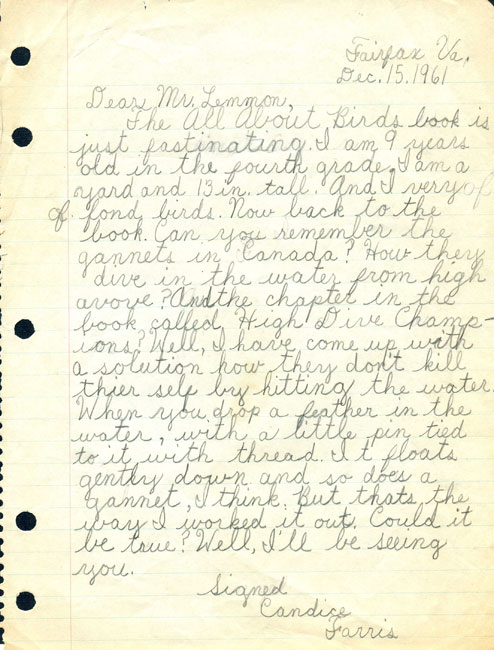 Fairfax Va,
Dec. 15. 1961
Dear Mr. Lemmon,
The All About Birds book is
just fastinating. I am 9 years
old in the fourth grade. I am a
yard and 13 in. tall. And I very of
of fond birds. Now back to the
book. Can you remember the
gannets in Canada? How they
dive in the water from high
avove? And the chapter in the
book called High Dive Champ-
ions? Well, I have come up with
a solution how they don't kill
thier self by hitting the water.
When you drop a feather in the
water, with a little pin tied
to it with thread. It floats
gently down and so does a
gannet, I think. But thats the
way I worked it out. Could it
be true? Well, I'll be seeing
you.
Signed
Candice
Farris